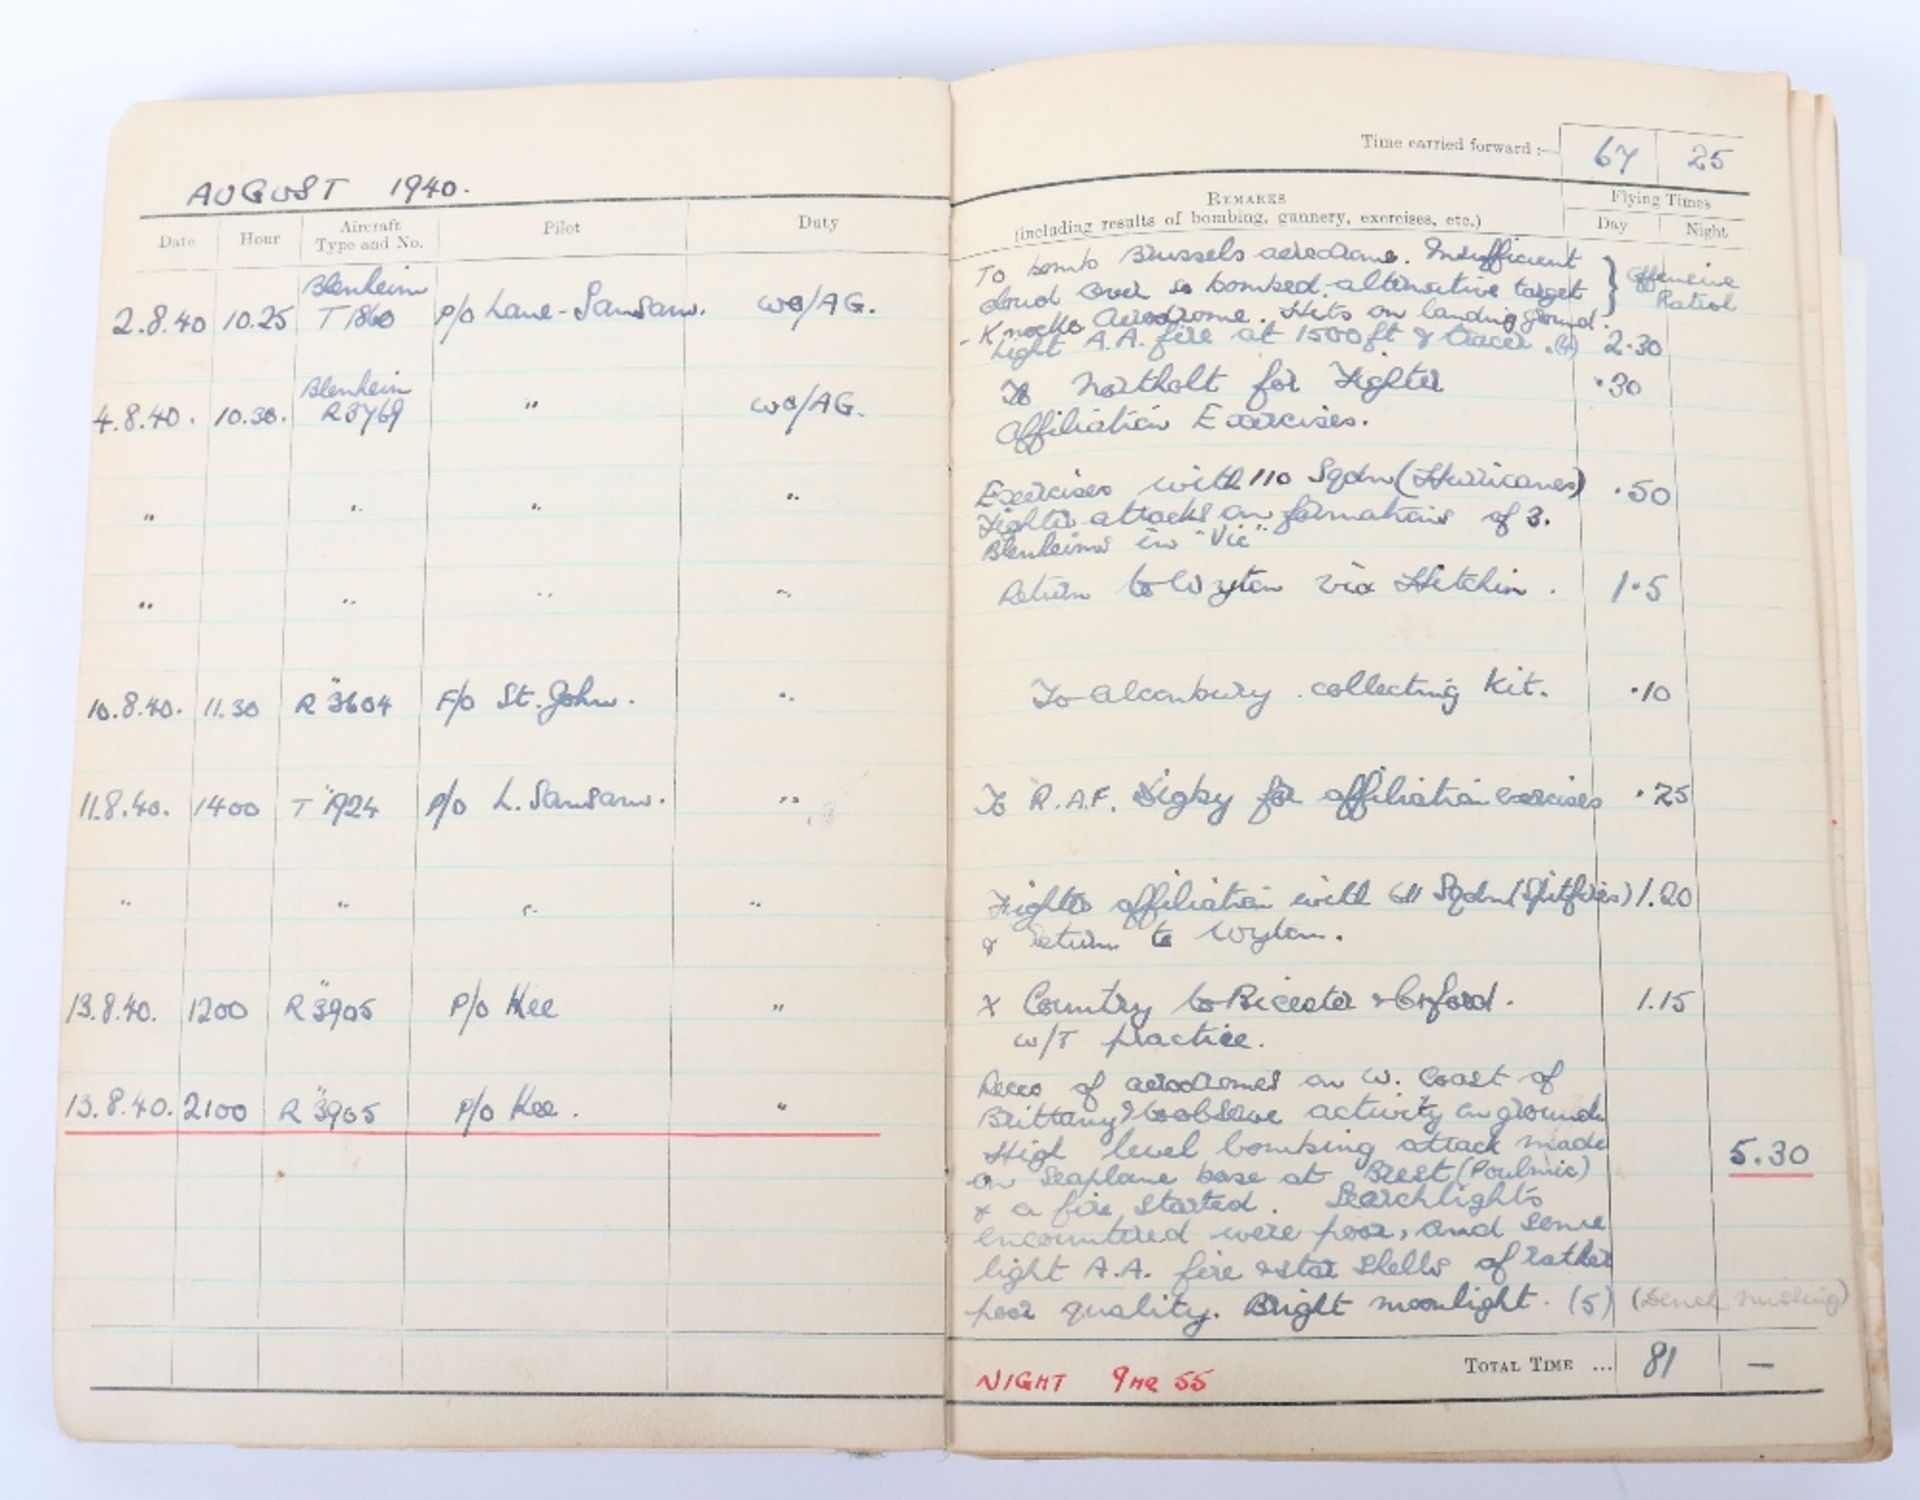 AUGUST 1940.
Date Hour Aircraft Type and No. Pilot Duty
Blenheim
2.8.40 10.25 T 1860 P/O Lane-Sansam. WO/AG.
Blenheim
4.8.40. 10.30. R3769 " WO/AG.
" " " "
" " " "
"
10.8.40. 11.30 R 3604 F/O St. John. "
"
11.8.40. 1400 T 1924 P/O L. Sansam. "
" " " "
"
13.8.40. 1200 R 3905 P/O Kee "
"
13.8.40. 2100 R 3905 P/O Kee. "
Time carried forward :— 67 25
REMARKS
(including results of bombing, gunnery, exercises, etc.)
Flying Times
Day Night
To bomb Brussels aerodrome. Insufficient
cloud cover so bombed alternative target
- Knocke Aerodrome. Hits on landing ground.
Light A.A. fire at 1500 ft & tracer. (4) 2.30
} Offensive
Patrol
To Northolt for Fighter .30
Affiliation Exercises.
Exercises with 110 Sqdn (Hurricanes) .50
Fighter attacks on formations of 3.
Blenheims in "Vic"
Return to Wyton via Hitchin. 1.5
To Alconbury collecting kit. .10
To R.A.F. Digby for affiliation exercises .25
Fighter affiliation with 611 Sqdn (Spitfires) 1.20
& return to Wyton.
X Country to Bicester & Oxford. 1.15
W/T practice.
Recco of aerodromes on W. Coast of
Brittany & to observe activity on ground
High level bombing attack made
5.30
on Seaplane base at Brest (Poulmic)
& a fire started. Searchlights
encountered were poor, and some
light A.A. fire & star shells of rather
poor quality. Bright moonlight. (5) missing)
NIGHT 9HR 55
TOTAL TIME ... 81 —